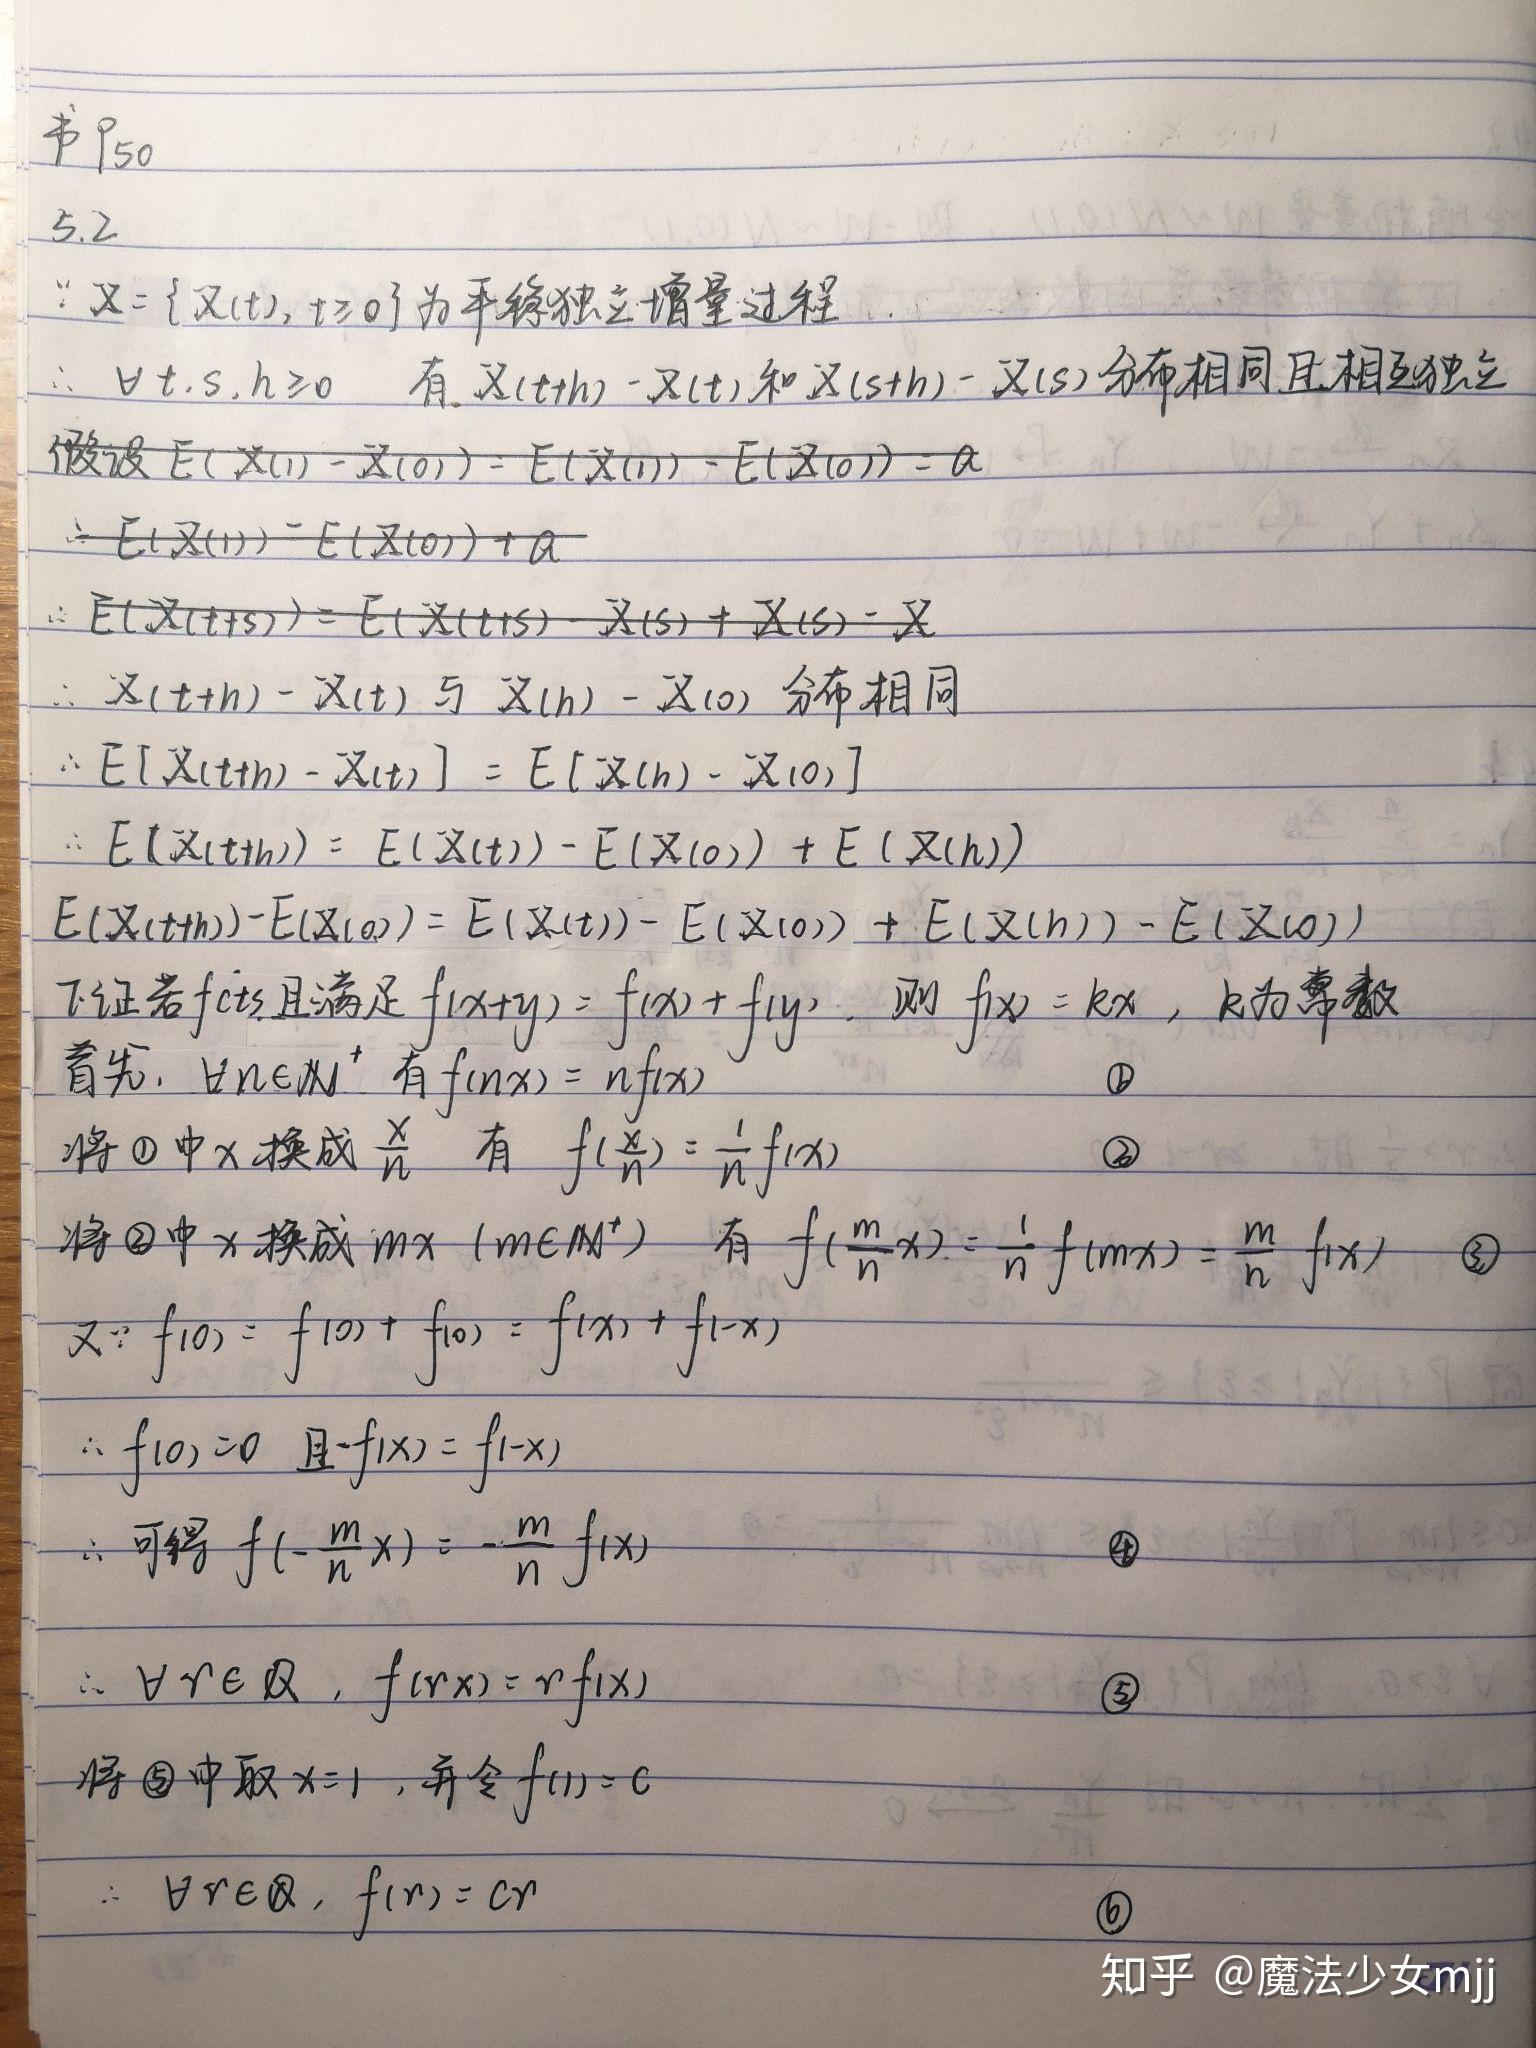 书P50
5.2
∵ X={X(t), t≥0}为平稳独立增量过程.
∴ ∀t.s,h≥0 有 X(t+h)-X(t)和X(s+h)-X(s)分布相同且相互独立
假设 E(X(1)-X(0))=E(X(1))-E(X(0))=a
∴ E(X(1))=E(X(0))+a
∴ E(X(t+s))=E(X(t+s)-X(s)+X(s)-X
∴ X(t+h)-X(t) 与 X(h)-X(0) 分布相同
∴ E[X(t+h)-X(t)] = E[X(h)-X(0)]
∴ E(X(t+h)) = E(X(t))-E(X(0))+E(X(h))
E(X(t+h))-E(X(0))=E(X(t))-E(X(0))+E(X(h))-E(X(0))
下证若f cts且满足 f(x+y)=f(x)+f(y), 则 f(x)=kx, k为常数
首先, ∀n∈N⁺ 有f(nx)=nf(x) ①
将①中x换成 x/n 有 f(x/n)=1/n f(x) ②
将②中x换成mx (m∈N⁺) 有 f(m/n x)=1/n f(mx)=m/n f(x) ③
又∵ f(0)=f(0)+f(0)=f(x)+f(-x)
∴ f(0)=0 且-f(x)=f(-x)
∴ 可得 f(-m/n x)=-m/n f(x) ④
∴ ∀r∈Q, f(rx)=rf(x) ⑤
将⑤中取x=1, 并令f(1)=c
∴ ∀r∈Q, f(r)=cr ⑥
知乎 @魔法少女mjj